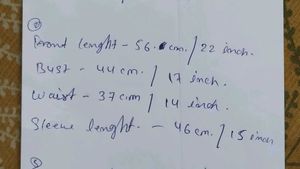 Front lenght - 56. cm. / 22 inch.
Bust - 44 cm. / 17 inch.
Waist - 37 cm / 14 inch.
Sleeve lenght. - 46 cm. / 15 inch